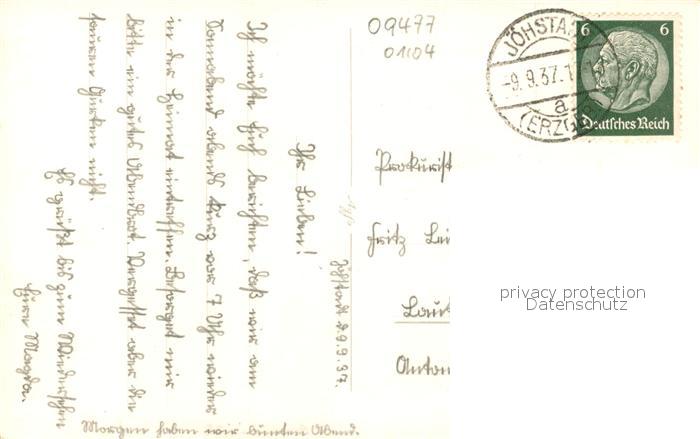 09477
01104
JÖHSTA
-9.9.37.1
a
(ERZG
6 6
Deutsches Reich
Jöhstadt 9.9.37.
Ihr Lieben!
Ich möchte Euch berichten, daß wir am
Sonnabend abends kurz vor 7 Uhr wieder
in der Heimat eintreffen. Besorget mir
bitte ein gutes Abendbrot. Vergesset aber die
sauren Gurken nicht.
Es grüßt bis zum Wiedersehen
Eure Magda.
Morgen haben wir bunten Abend.
Prokurist
Fritz Lei
Laut
Anton
privacy protection
Datenschutz